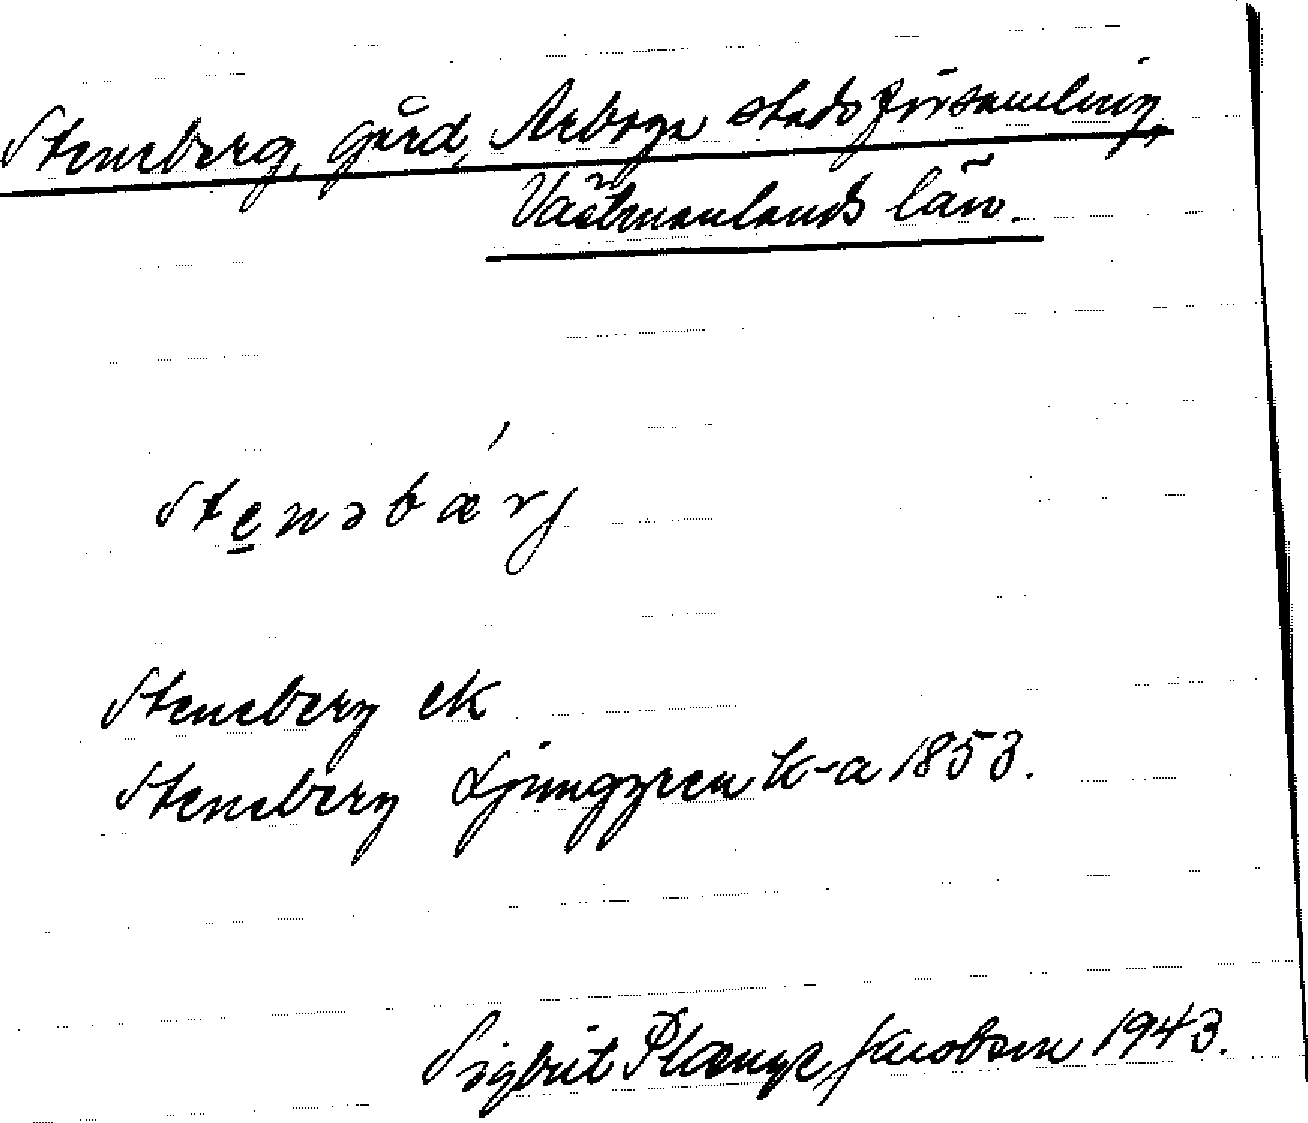 Steneberg, gård, Arboga stadsförsamling,
Västmanlands län.
Stenəbǽrj
Steneberg ek
Steneberg Ljunggren k-a 1853.
Sigbrit Plænge Jacobson 1943.